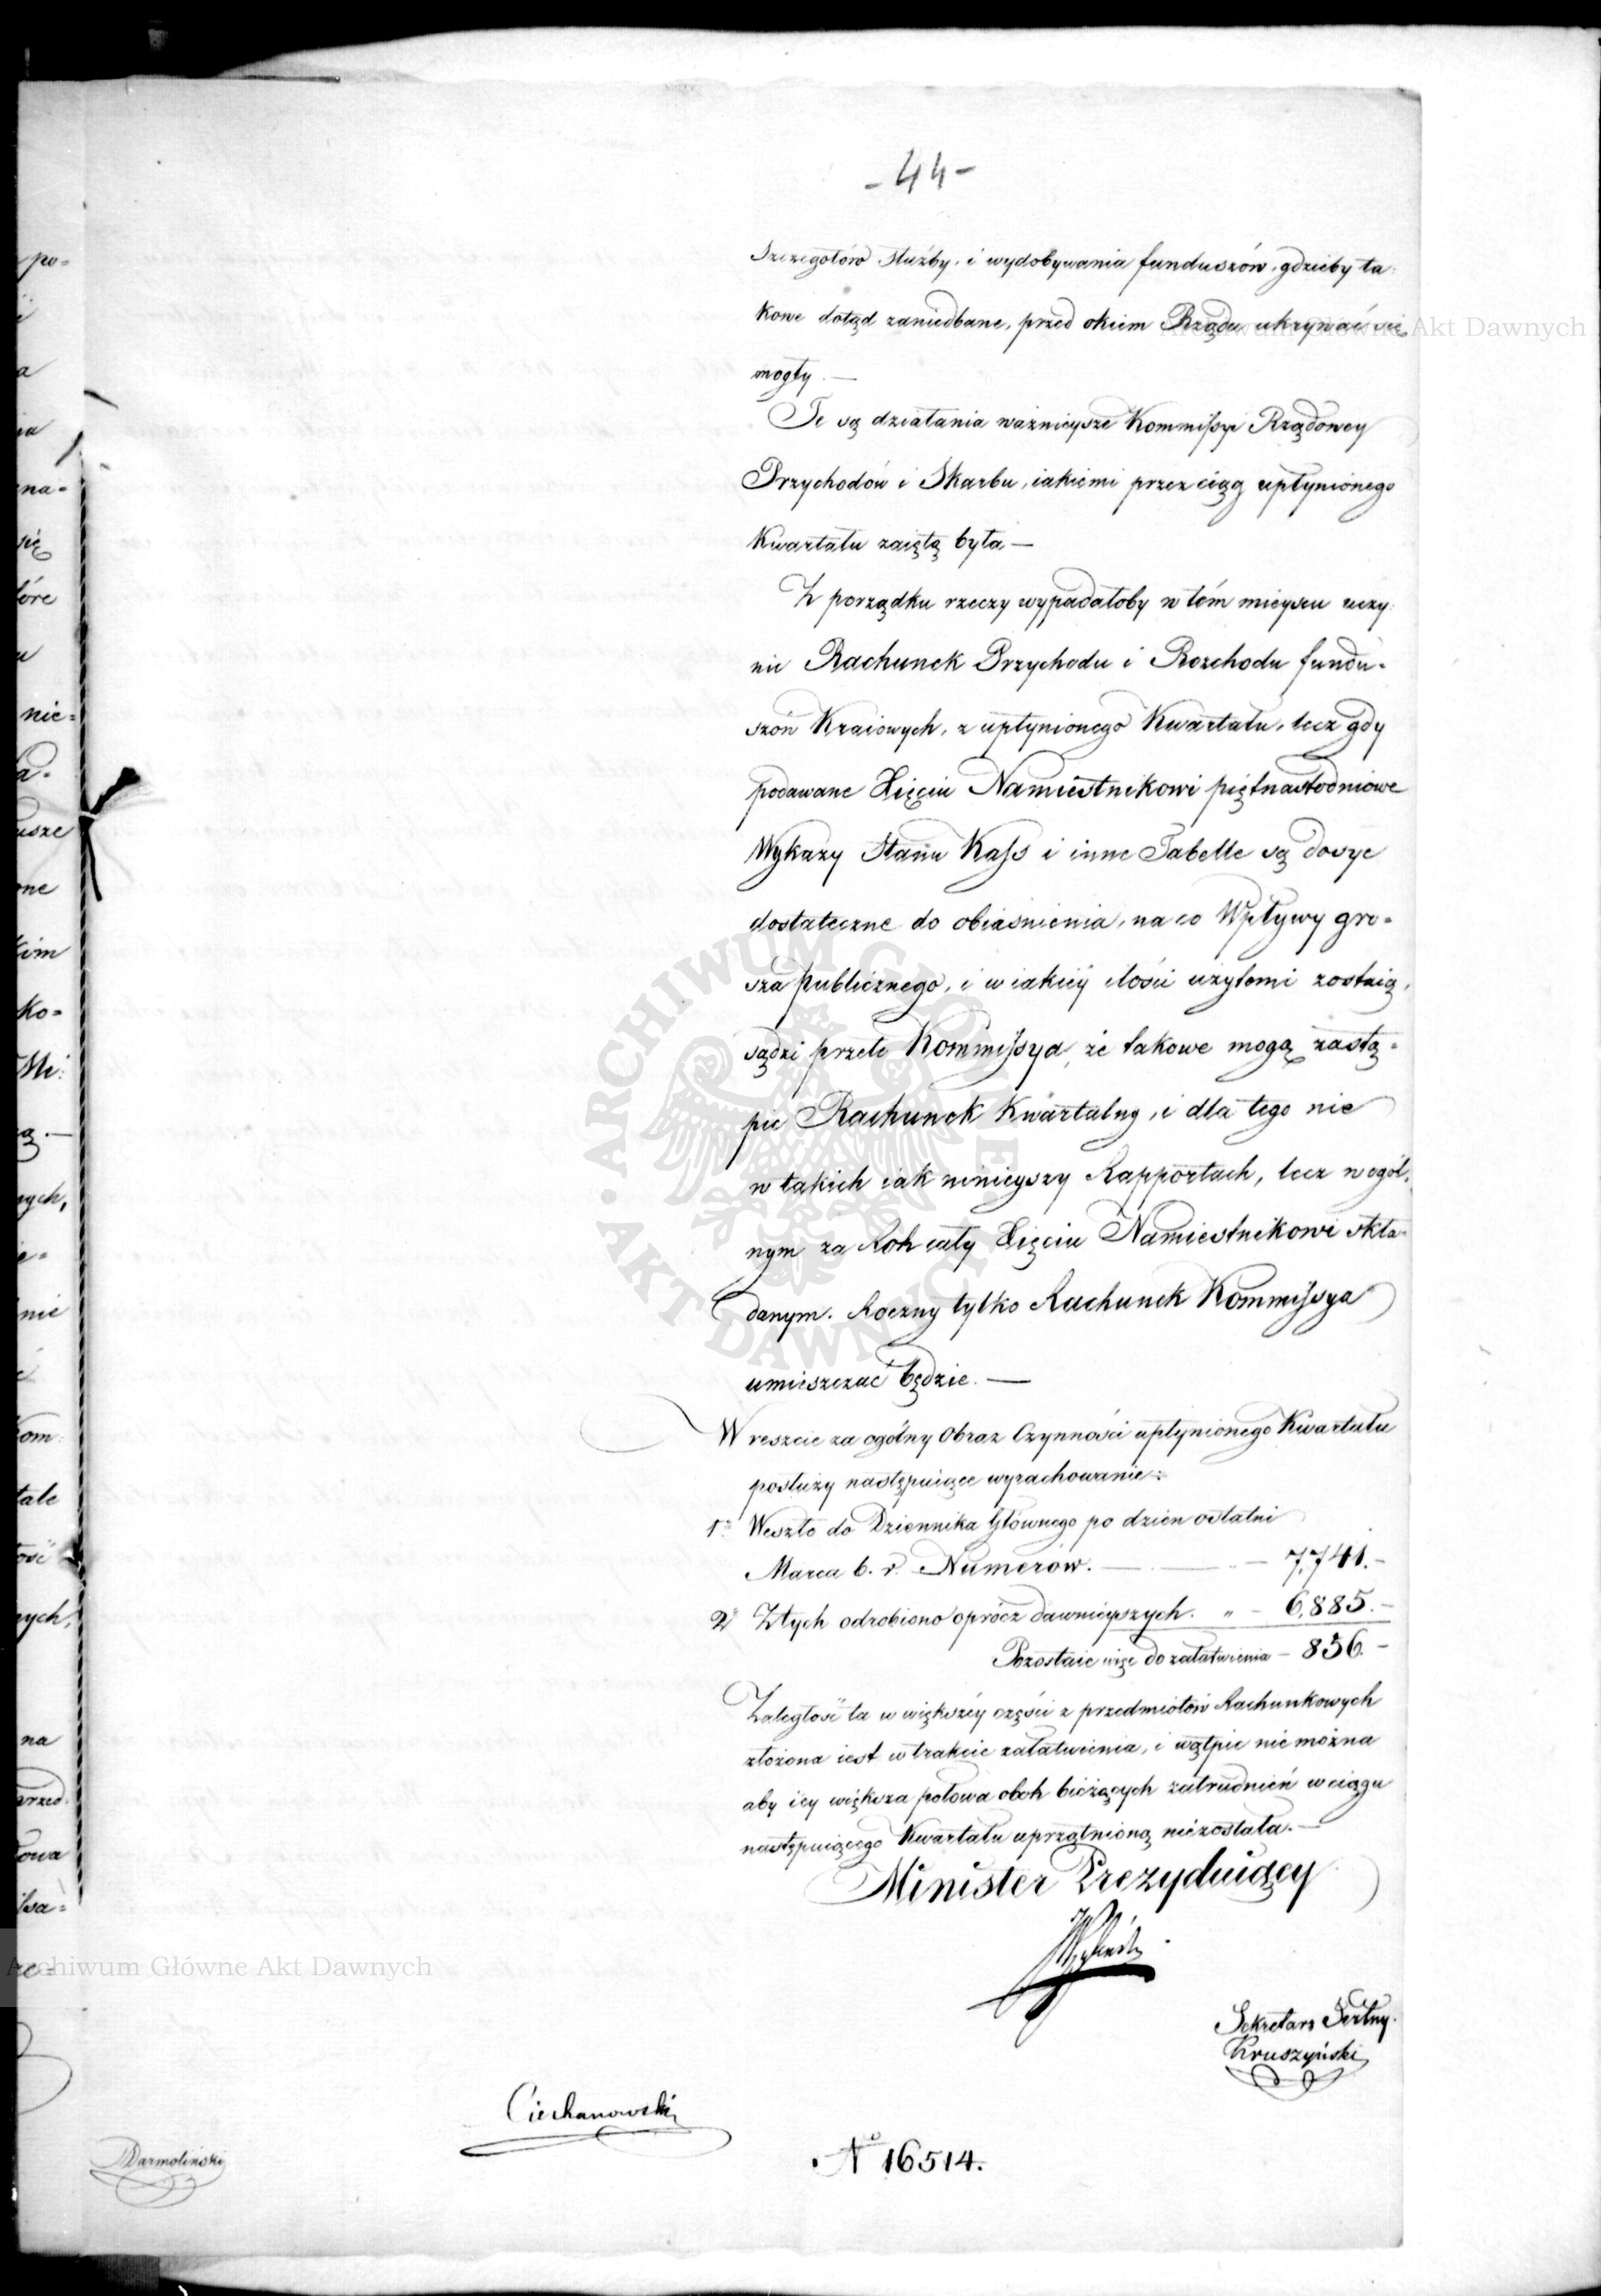 - 44 -
szczegołów służby, i wydobywania funduszów, gdzieby ta:
kowe dotąd zaniedbane, przed okiem Rządu ukrywać się
mogły. —
Te są działania ważnieysze Kommissyi Rządowey
Przychodów i Skarbu, iakiemi przez ciąg upłynionego
Kwartału zaiętą była —
Z porządku rzeczy wypadałoby w tém mieyscu uczy:
nić Rachunek Przychodu i Rozchodu fundu-
szów Kraiowych, z upłynionego Kwartału, lecz gdy
podawane Xięciu Namiestnikowi piętnastodniowe
Wykazy Stanu Kass i inne Tabelle są dosyć
dostateczne do obiaśnienia, na co Wpływy gro-
sza publicznego, i w iakiéy ilości użytemi zostaią,
sądzi przeto Kommissya, że takowe mogą zastą-
pić Rachunek Kwartalny, i dla tego nie
w takich iak ninieyszy Rapportach, lecz w ogól-
nym za Rok cały Xięciu Namiestnikowi skła-
danym. Roczny tylko Rachunek Kommissya
umieszczać będzie. —
W reszcie za ogólny Obraz Czynności upłynionego Kwartału
posłuży następuiące wyrachowanie:
1° Weszło do Dziennika Głównego po dzień ostatni
Marca b. r. Numerów. — 7,741. -
2° Z tych odrobiono oprócz dawnieyszych. „ - 6,885. -
Pozostaie więc do załatwienia - 856. -
Zaległość ta w większéy części z przedmiotów Rachunkowych
złożona iest w trakcie załatwienia, i wątpić nie można
aby iey większa połowa obok bieżących zatrudnień w ciągu
następuiącego Kwartału uprzątnioną nie została. —
Minister Prezyduiący
Sekretarz Jertny.
Kruszyński
Ciechanowski
Darmoliński
N° 16514.
po-
i
a
ia
na-
się
tóre
u
nie-
a.
usze
one
kim
ko-
Mi:
ą. —
ych,
ie-
nie
ć
om
tale
ość
nych,
na
przed
owa
ssa-
ze-
Archiwum Główne Akt Dawnych
Archiwum Główne Akt Dawnych
ARCHIWUM GŁÓWNE · AKT DAWNYCH ·